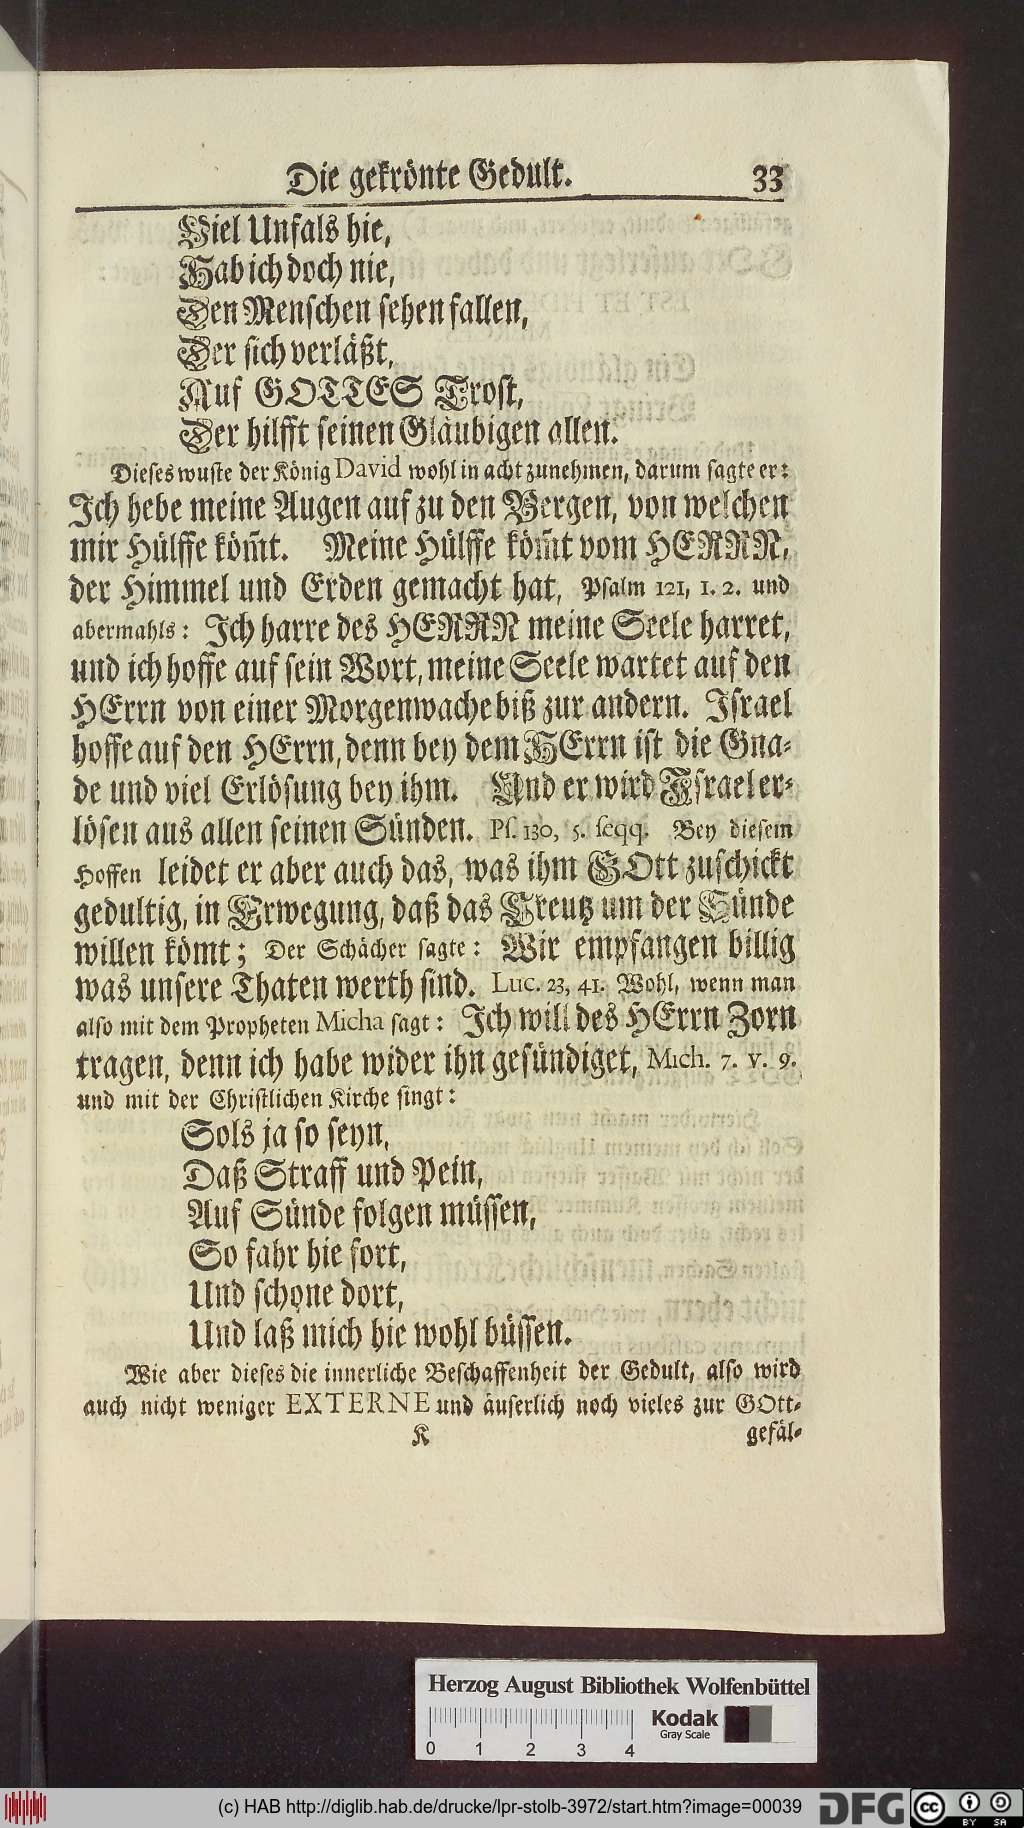 Die gekrönte Gedult. 33
Viel Unfals hie,
Hab ich doch nie,
Den Menschen sehen fallen,
Der sich verläßt,
Auf GOTTES Trost,
Der hilfft seinen Gläubigen allen.
Dieses wuste der König David wohl in acht zunehmen, darum sagte er:
Ich hebe meine Augen auf zu den Bergen, von welchen
mir Hülffe köm̃t. Meine Hülffe köm̃t vom HERRN,
der Himmel und Erden gemacht hat, Psalm 121, 1. 2. und
abermahls: Ich harre des HERRN meine Seele harret,
und ich hoffe auf sein Wort, meine Seele wartet auf den
HErrn von einer Morgenwache biß zur andern. Israel
hoffe auf den HErrn, denn bey dem HErrn ist die Gna-
de und viel Erlösung bey ihm. Und er wird Israel er-
lösen aus allen seinen Sünden. Ps. 130, 5. seqq. Bey diesem
Hoffen leidet er aber auch das, was ihm GOtt zuschickt
gedultig, in Erwegung, daß das Creutz um der Sünde
willen kömt; Der Schächer sagte: Wir empfangen billig
was unsere Thaten werth sind. Luc. 23, 41. Wohl, wenn man
also mit dem Propheten Micha sagt: Ich will des HErrn Zorn
tragen, denn ich habe wider ihn gesündiget, Mich. 7. v. 9.
und mit der Christlichen Kirche singt:
Sols ja so seyn,
Daß Straff und Pein,
Auf Sünde folgen müssen,
So fahr hie fort,
Und schone dort,
Und laß mich hie wohl büssen.
Wie aber dieses die innerliche Beschaffenheit der Gedult, also wird
auch nicht weniger EXTERNE und äuserlich noch vieles zur GOtt-
K gefäl-
Herzog August Bibliothek Wolfenbüttel
Kodak
Gray Scale
0 1 2 3 4
(c) HAB http://diglib.hab.de/drucke/lpr-stolb-3972/start.htm?image=00039 DFG cc BY SA